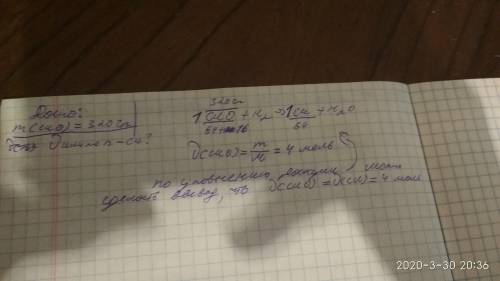 Дано:
m(CuO) = 320г
320г
1 CuO + H₂ → 1 Cu + H₂O
64+16 64
ν(CuO) = m/M = 4 моль
по уравнению реакции можно
сделать вывод, что ν(CuO) = ν(Cu) = 4 моль
2020-3-30 20:36